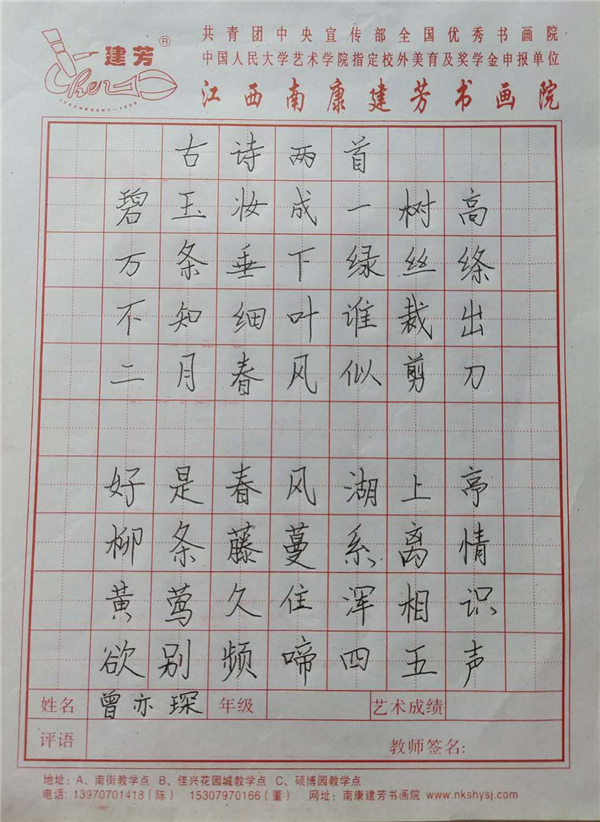 共青团中央宣传部全国优秀书画院
建芳®
中国人民大学艺术学院指定校外美育及奖学金申报单位
Chen
江西南康建芳书画院
古诗两首
碧玉妆成一树高
万条垂下绿丝绦
不知细叶谁裁出
二月春风似剪刀
好是春风湖上亭
柳条藤蔓系离情
黄莺久住浑相识
欲别频啼四五声
姓名 曾亦琛 年级 艺术成绩
评语 教师签名:
地址: A、南街教学点 B、佳兴花园城教学点 C、硕博园教学点
电话: 13970701418（陈） 15307970166（董） 网址: 南康建芳书画院 www.nkshysj.com